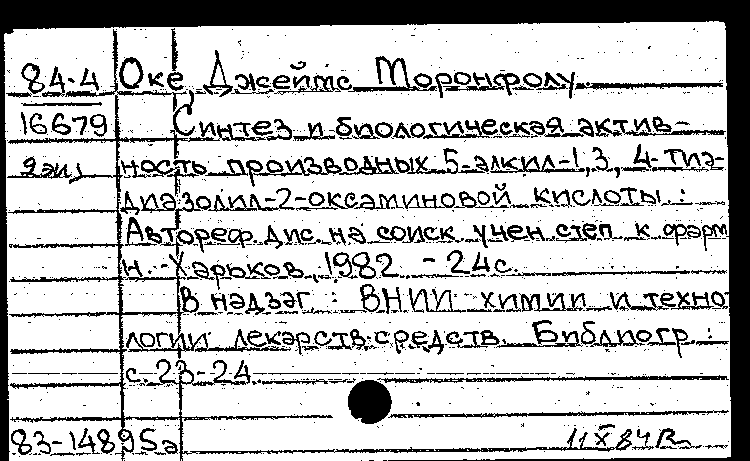 84-4 Оке, Джеймс Моронфолу
16679 Синтез и биологическая актив-
ность производных 5-алкил-1,3,4-тиа-
диазолил-2-оксаминовой кислоты :
Автореф. дис. на соиск. учен. степ. к. фарм.
н. -Харьков, 1982 - 24с.
В надзаг. : ВНИИ химии и техно
логии лекарств. средств. Библиогр. :
с. 23-24
83-14895а 11 X 84